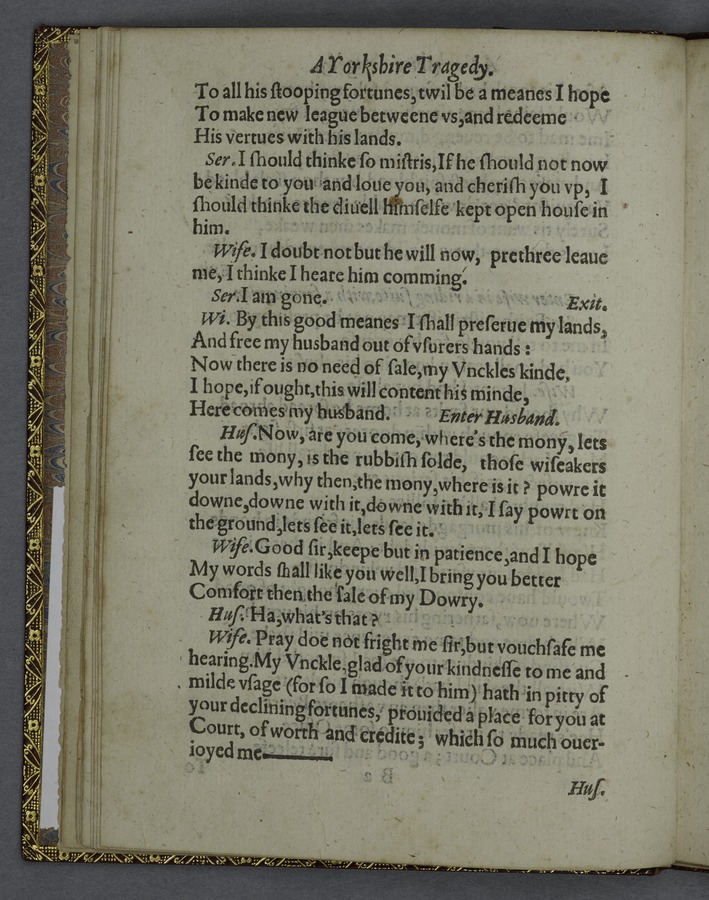 A Yorkſhire Tragedy.
To all his ſtooping fortunes, twil be a meanes I hope
To make new league betweene vs, and redeeme
His vertues with his lands.
Ser. I ſhould thinke ſo miſtris, If he ſhould not now
be kinde to you and loue you, and cheriſh you vp, I
ſhould thinke the diuell himſelfe kept open houſe in
him.
Wife. I doubt not but he will now, prethree leaue
me, I thinke I heare him comming.
Ser. I am gone. Exit.
Wi. By this good meanes I ſhall preſerue my lands,
And free my husband out of vſurers hands :
Now there is no need of ſale, my Vnckles kinde,
I hope, if ought, this will content his minde,
Here comes my husband. Enter Husband.
Huſ. Now, are you come, where's the mony, lets
ſee the mony, is the rubbiſh ſolde, thoſe wiſeakers
your lands, why then, the mony, where is it ? powre it
downe, downe with it, downe with it, I ſay powrt on
the ground, lets ſee it, lets ſee it.
Wife. Good ſir, keepe but in patience, and I hope
My words ſhall like you well, I bring you better
Comfort then the ſale of my Dowry.
Huſ. Ha, what's that ?
Wife. Pray doe not fright me ſir, but vouchſafe me
hearing. My Vnckle, glad of your kindneſſe to me and
milde vſage (for ſo I made it to him) hath in pitty of
your declining fortunes, prouided a place for you at
Court, of worth and credite ; which ſo much ouer-
ioyed me———
Huſ.